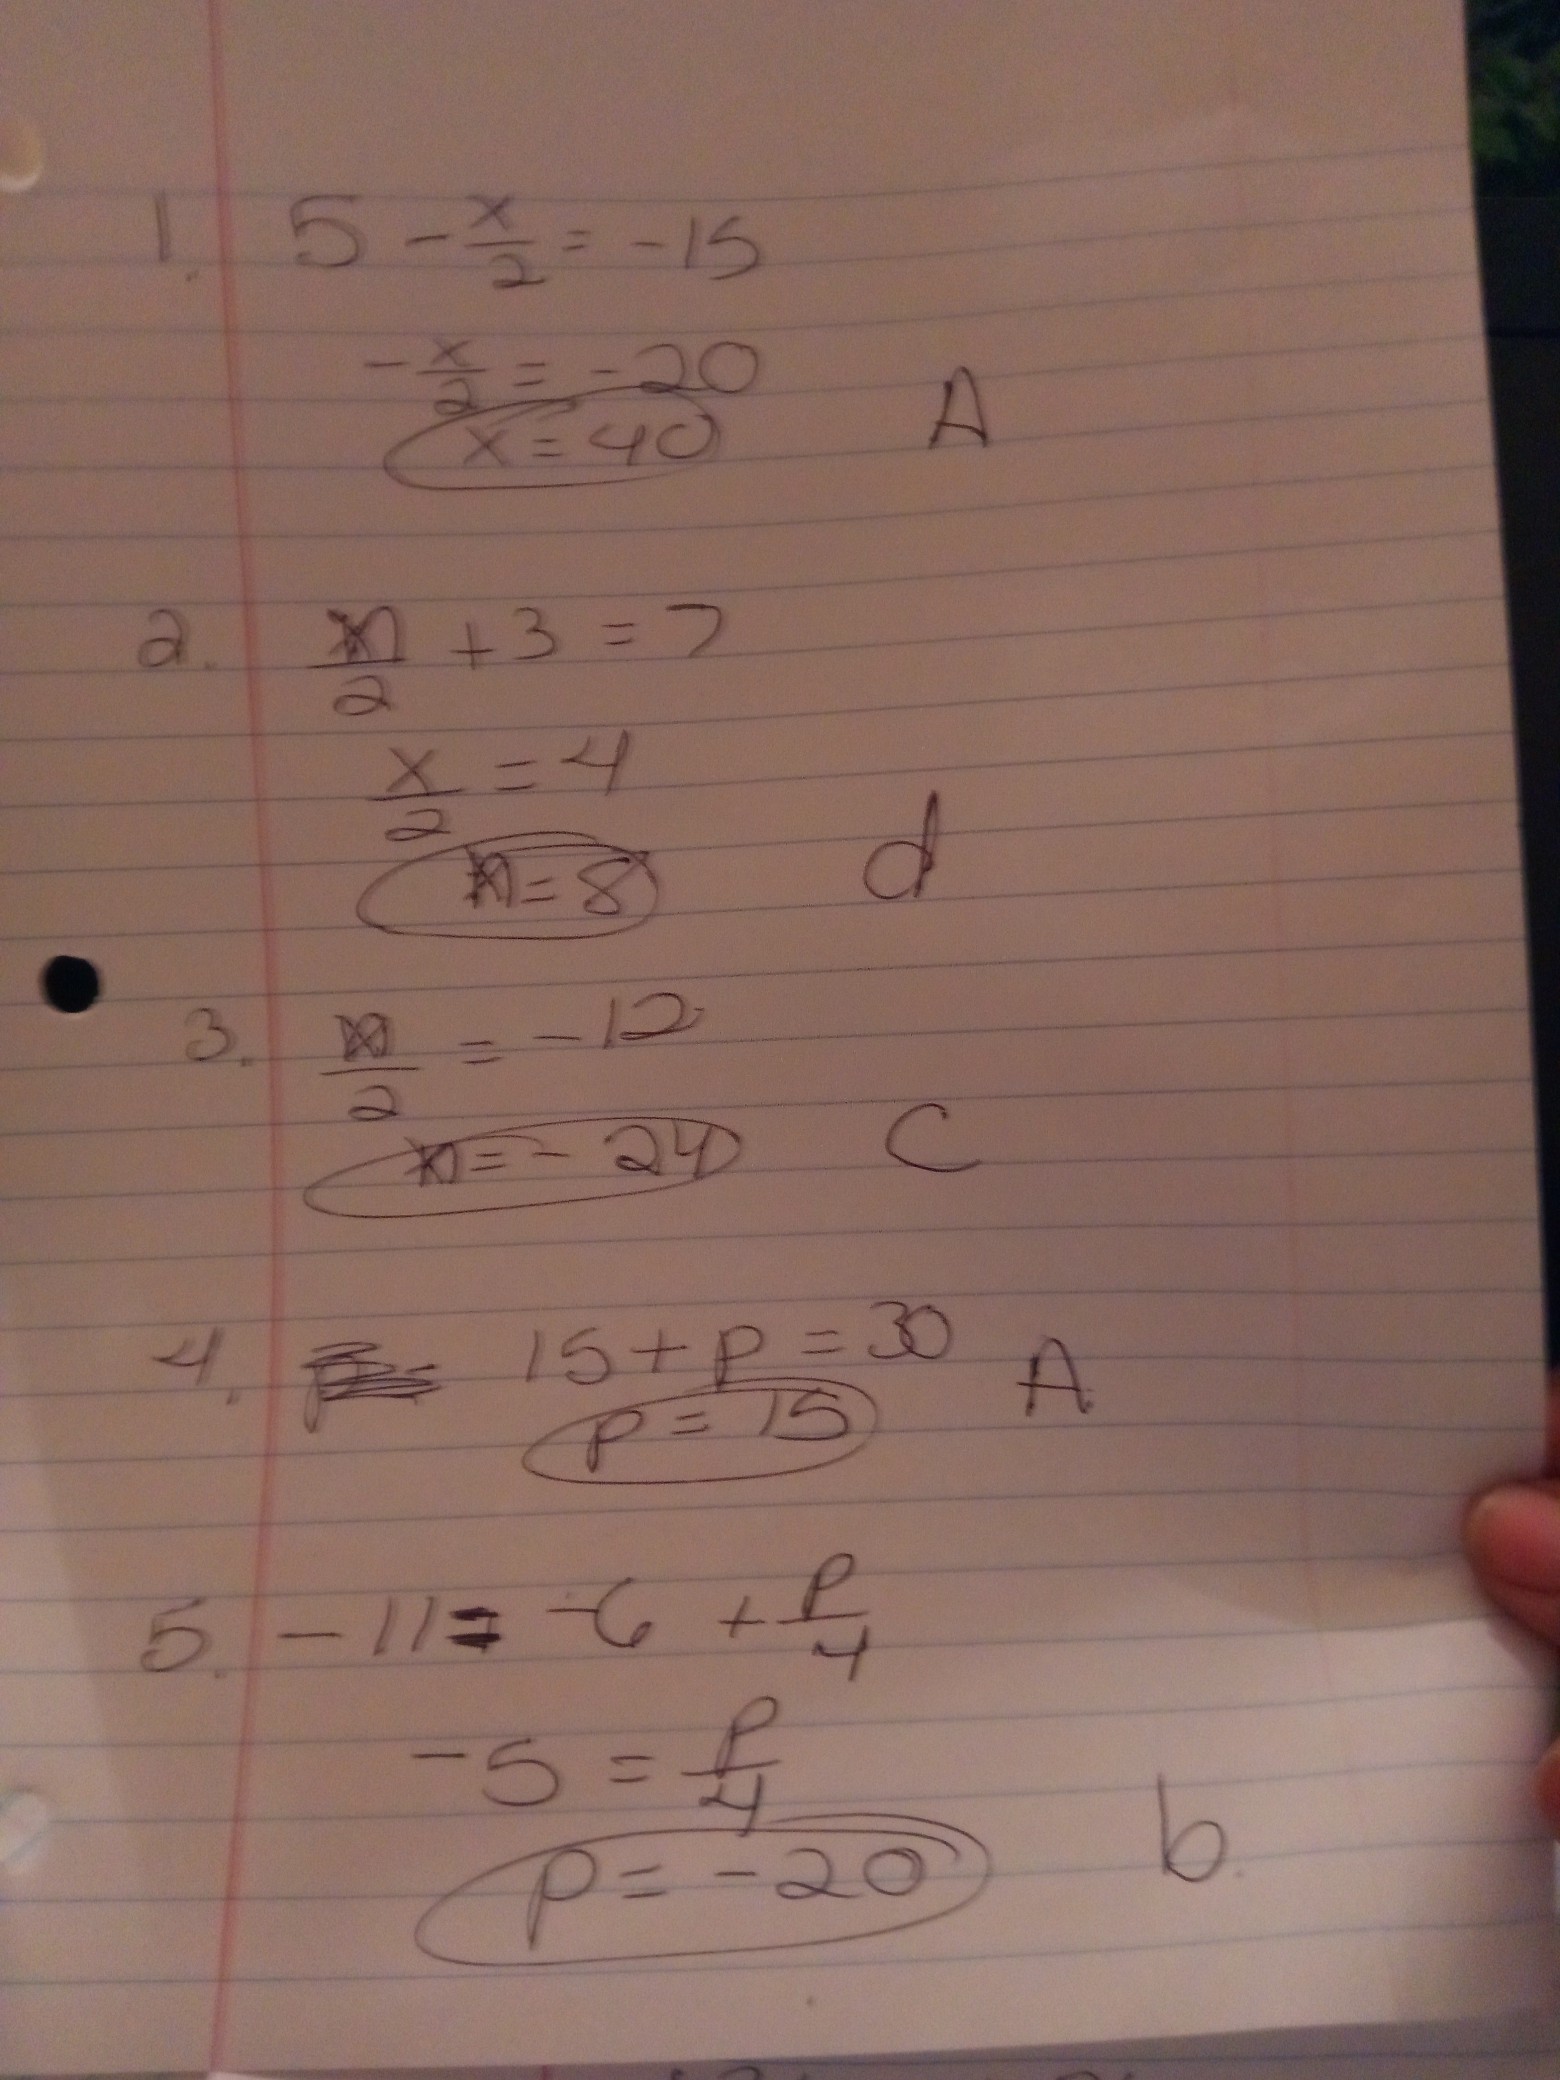 1. 5 - x/2 = -15
-x/2 = -20
x = 40 A
2. n/2 + 3 = 7
x/2 = 4
n = 8 d
3. n/2 = -12
n = - 24 C
4. 15 + p = 30 A
p = 15
5. - 11 = -6 + p/4
-5 = p/4
p = -20 b.